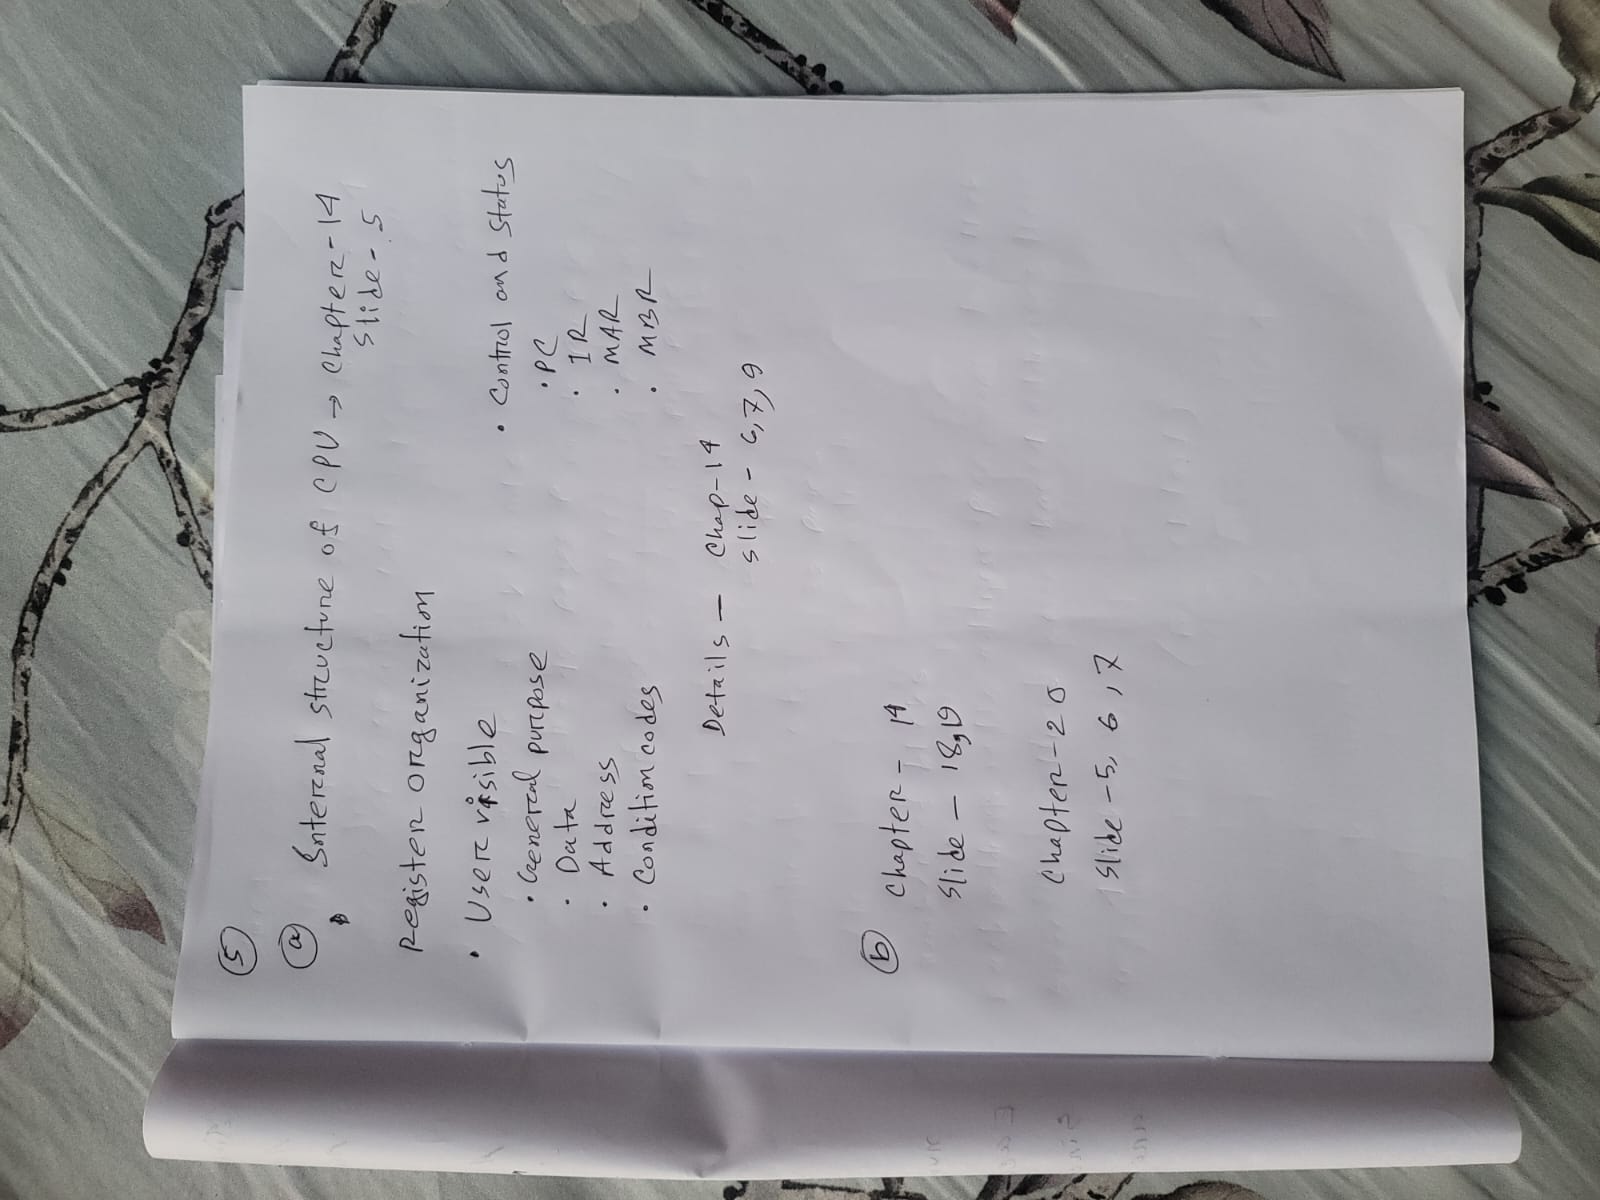 5
a Internal structure of CPU → Chapter-14
Slide-5
Register organization
• User visible
• General purpose
• Data
• Address
• Condition codes
• Control and status
• PC
• IR
• MAR
• MBR
Details - Chap-14
Slide - 6,7,9
b Chapter - 14
Slide - 18,19
Chapter-20
Slide - 5, 6, 7